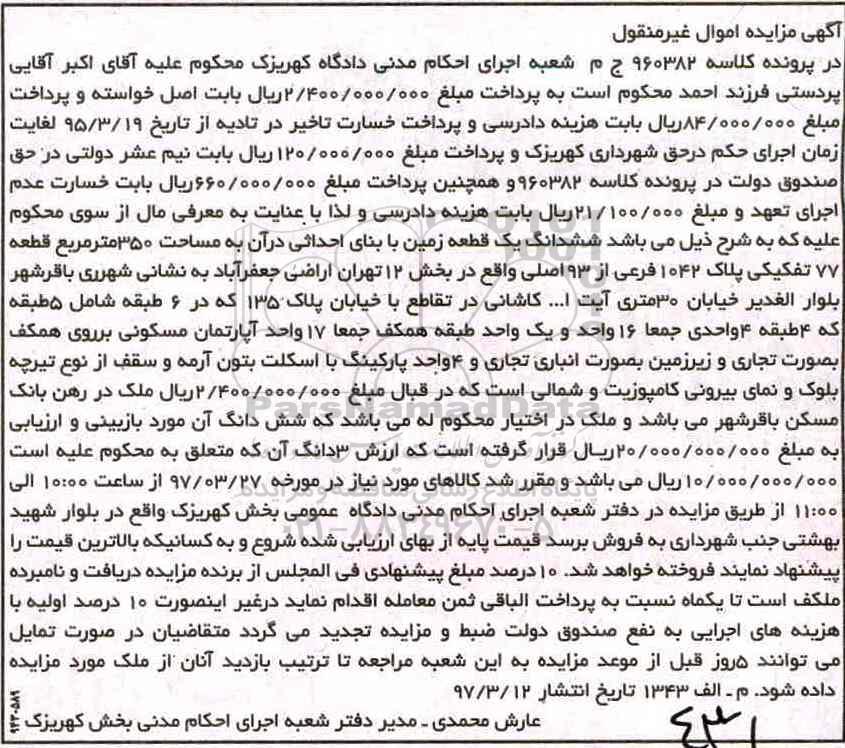 آگهی مزایده اموال غیرمنقول
در پرونده کلاسه ۹۶۰۳۸۲ ج م شعبه اجرای احکام مدنی دادگاه کهریزک محکوم علیه آقای اکبر آقایی
پردستی فرزند احمد محکوم است به پرداخت مبلغ ۲/۴۰۰/۰۰۰/۰۰۰ریال بابت اصل خواسته و پرداخت
مبلغ ۸۴/۰۰۰/۰۰۰ریال بابت هزینه دادرسی و پرداخت خسارت تاخیر در تادیه از تاریخ ۹۵/۳/۱۹ لغایت
زمان اجرای حکم درحق شهرداری کهریزک و پرداخت مبلغ ۱۲۰/۰۰۰/۰۰۰ریال بابت نیم عشر دولتی در حق
صندوق دولت در پرونده کلاسه ۹۶۰۳۸۲و همچنین پرداخت مبلغ ۶۶۰/۰۰۰/۰۰۰ریال بابت خسارت عدم
اجرای تعهد و مبلغ ۲۱/۱۰۰/۰۰۰ریال بابت هزینه دادرسی و لذا با عنایت به معرفی مال از سوی محکوم
علیه که به شرح ذیل می باشد ششدانگ یک قطعه زمین با بنای احداثی درآن به مساحت ۳۵۰مترمربع قطعه
۷۷ تفکیکی پلاک ۱۰۴۲ فرعی از ۹۳اصلی واقع در بخش ۱۲تهران اراضی جعفرآباد به نشانی شهرری باقرشهر
بلوار الغدیر خیابان ۳۰متری آیت ا... کاشانی در تقاطع با خیابان پلاک ۱۳۵ که در ۶ طبقه شامل ۵طبقه
که ۴طبقه ۴واحدی جمعا ۱۶واحد و یک واحد طبقه همکف جمعا ۱۷واحد آپارتمان مسکونی برروی همکف
بصورت تجاری و زیرزمین بصورت انباری تجاری و ۴واحد پارکینگ با اسکلت بتون آرمه و سقف از نوع تیرچه
بلوک و نمای بیرونی کامپوزیت و شمالی است که در قبال مبلغ ۲/۴۰۰/۰۰۰/۰۰۰ریال ملک در رهن بانک
مسکن باقرشهر می باشد و ملک در اختیار محکوم له می باشد که شش دانگ آن مورد بازبینی و ارزیابی
به مبلغ ۲۰/۰۰۰/۰۰۰/۰۰۰ریال قرار گرفته است که ارزش ۳دانگ آن که متعلق به محکوم علیه است
۱۰/۰۰۰/۰۰۰/۰۰۰ریال می باشد و مقرر شد کالاهای مورد نیاز در مورخه ۹۷/۰۳/۲۷ از ساعت ۱۰:۰۰ الی
۱۱:۰۰ از طریق مزایده در دفتر شعبه اجرای احکام مدنی دادگاه عمومی بخش کهریزک واقع در بلوار شهید
بهشتی جنب شهرداری به فروش برسد قیمت پایه از بهای ارزیابی شده شروع و به کسانیکه بالاترین قیمت را
پیشنهاد نمایند فروخته خواهد شد. ۱۰درصد مبلغ پیشنهادی فی المجلس از برنده مزایده دریافت و نامبرده
ملکف است تا یکماه نسبت به پرداخت الباقی ثمن معامله اقدام نماید درغیر اینصورت ۱۰ درصد اولیه با
هزینه های اجرایی به نفع صندوق دولت ضبط و مزایده تجدید می گردد متقاضیان در صورت تمایل
می توانند ۵روز قبل از موعد مزایده به این شعبه مراجعه تا ترتیب بازدید آنان از ملک مورد مزایده
داده شود. م ـ الف ۱۳۴۳ تاریخ انتشار ۹۷/۳/۱۲
عارش محمدی ـ مدیر دفتر شعبه اجرای احکام مدنی بخش کهریزک
ParsNamadData
پایگاه اطلاع رسانی مناقصه و مزایده
۰۲۱-۸۸۳۴۹۶۷۰-۵